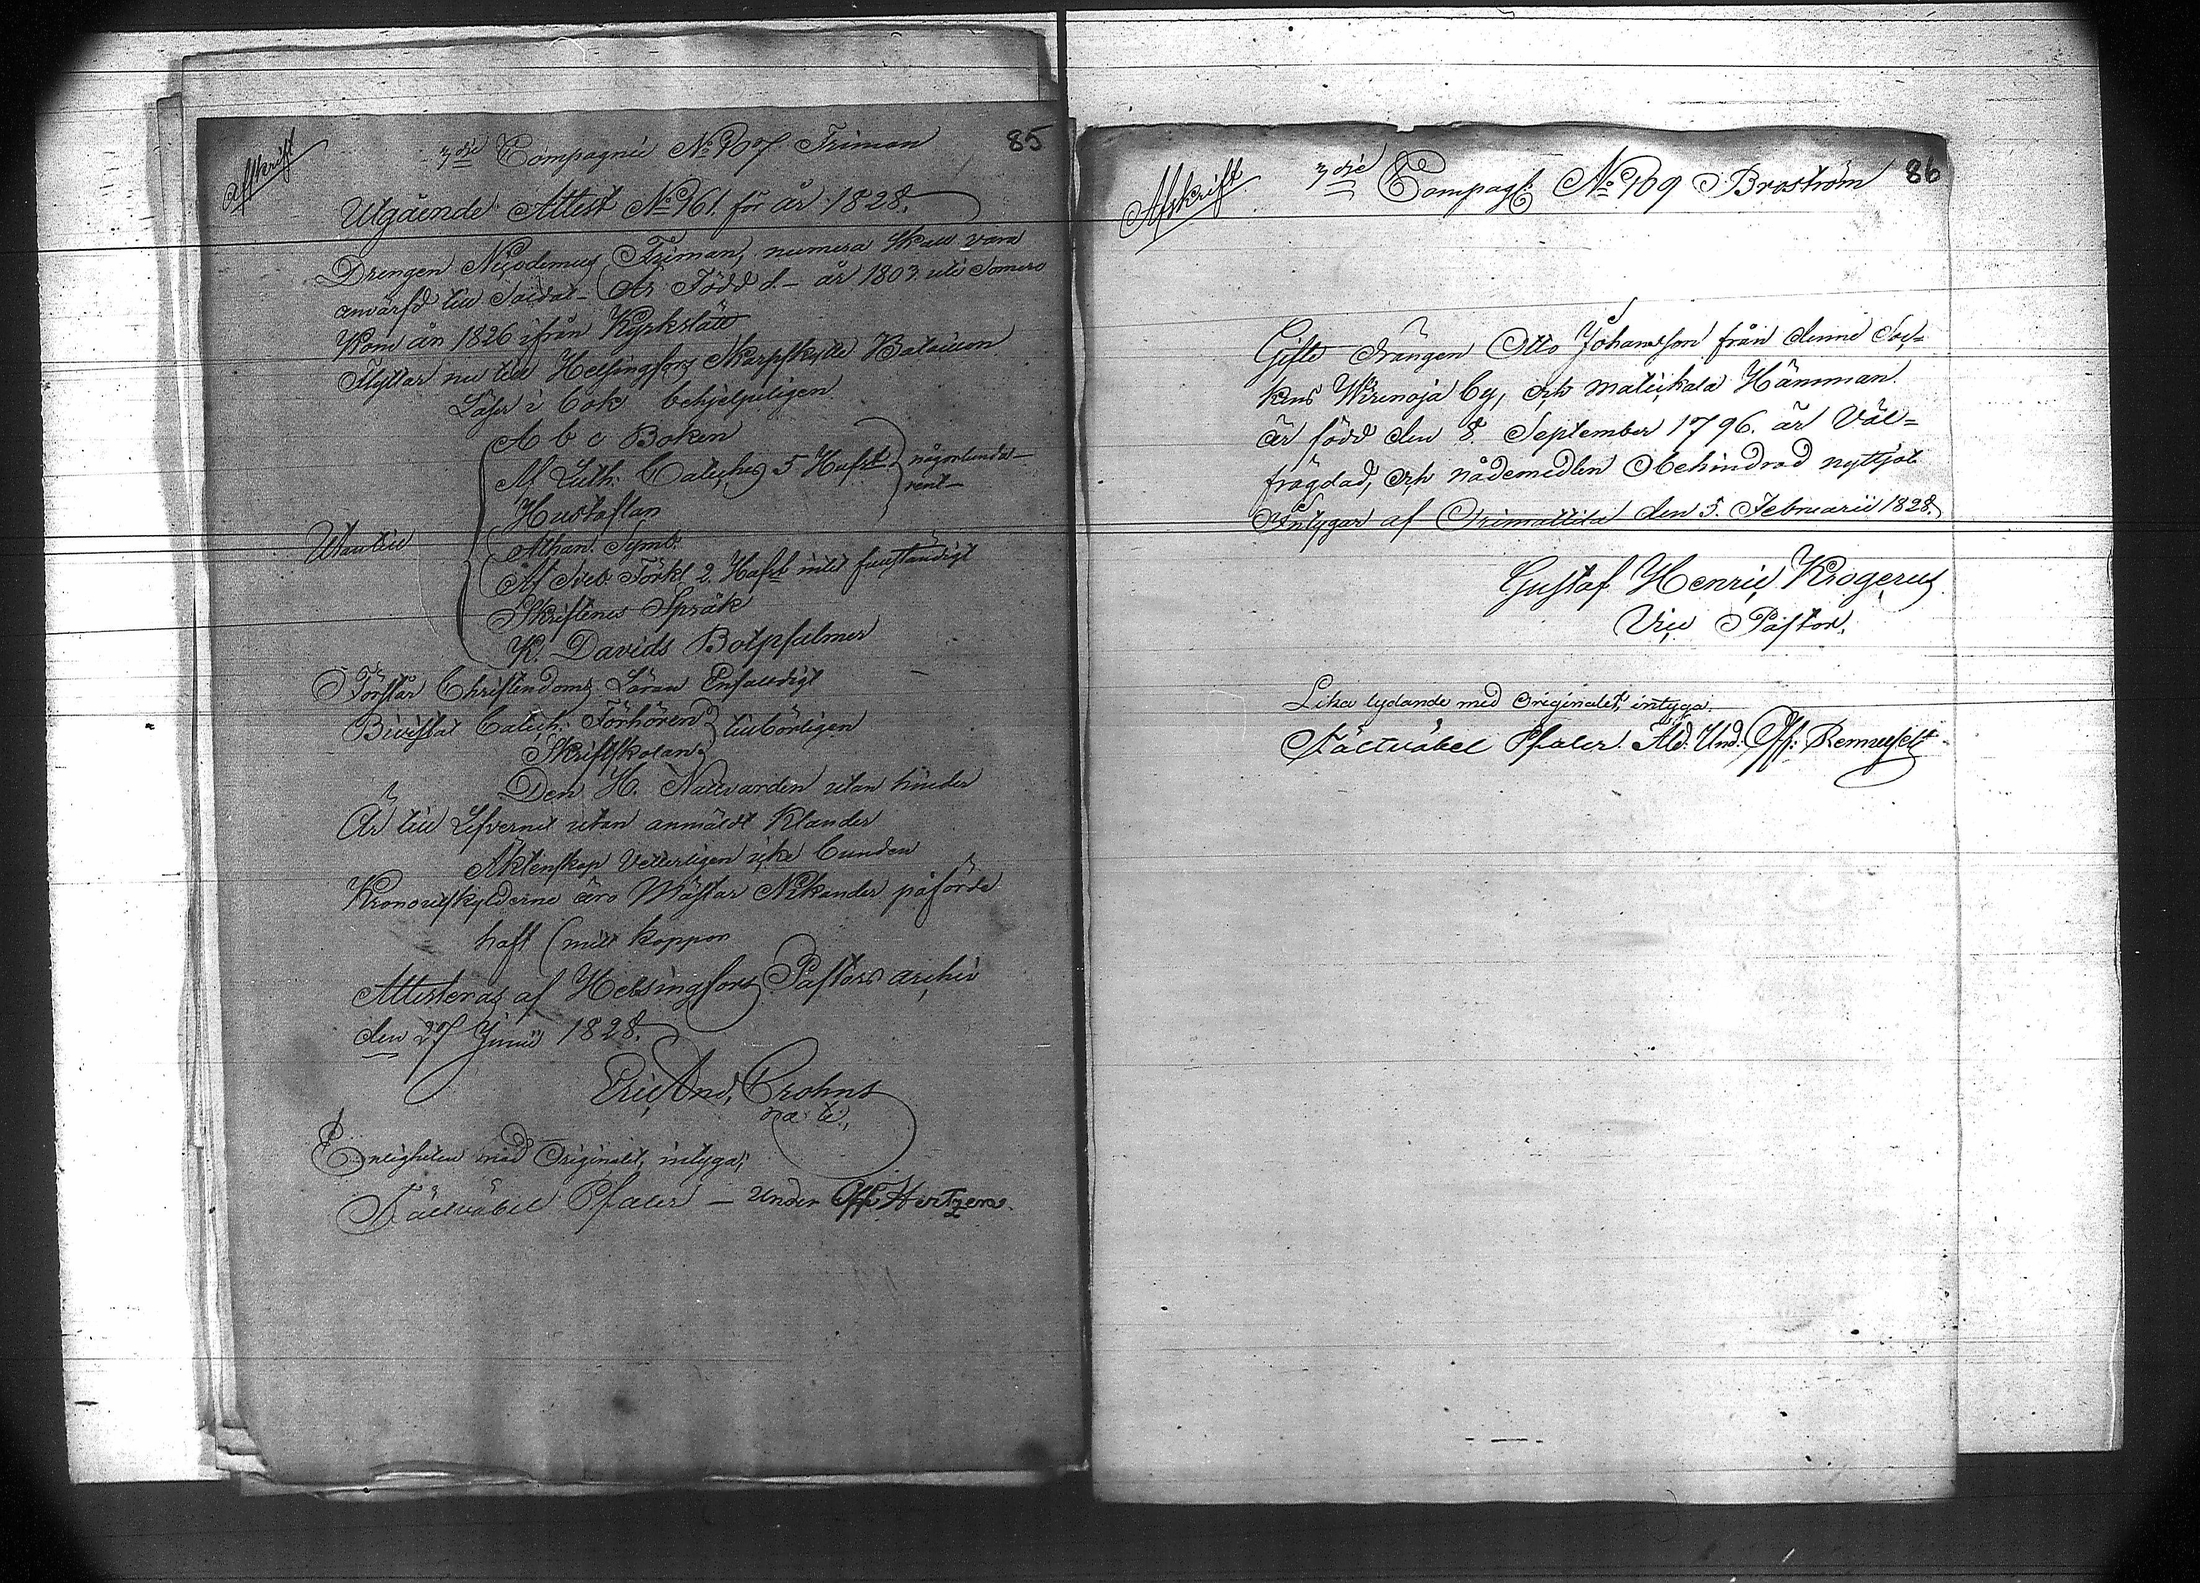 85
Afskrift
3die Compagnie No 107 Friman
Utgående Attest No 161. för år 1828.
Drengen Nicodemus Friman, numera skall vara
anvärfd till Soldat – Är Född d. – år 1803 uti Somero
Kom år 1826 ifrån Kyrkslätt
Flyttar nu till Helsingfors Skarpskytte Bataillon
Läser i bok behjelpeligen
A b c Boken
M Luth. Cateches 5 Hufst. någorlunda
rent –
Hustaflan
Utantill
Athan. Symb.
Af Sveb. Förkl 2 Hufst intet fullständigt
Skriftenes Språk
K. Davids Botpsalmer
Förstår Christendoms Läran Enfaldigt
Bivistat Catech. Förhören tillbörligen
Skriftskolan
Den H. Nattvarden utan hinder
Är till Lefvernet utan anmäldt Klander
Äktenskap Vetterligen icke bunden
Kronoutskylderne äro Mästar Nikander påförde
haft koppor
Attesteras af Helsingfors Pastors archiv
den 27 Junii 1828.
Eric And. Crohns
Enligheten med Originalet, intyga;
Fältväbel Pfaler – Under Off: Hertzen.
86
Afskrift
3die Compagt No 109 Broström
Gifte Drängen Otto Johansson från denne Soc=
kens Wirenoja by, och Matickala Hemman.
är född den 8. September 1796. är Väl=
frägdad, och nådemedlen obehindrad nyttjat
Intygar af Orimattila den 5. Februarii 1828.
Gustaf Henric Krogerus
Vice Pastor.
Lika lydande med Originalet, intyga.
Fältväbel Pfaler. Äld. Und. Off: